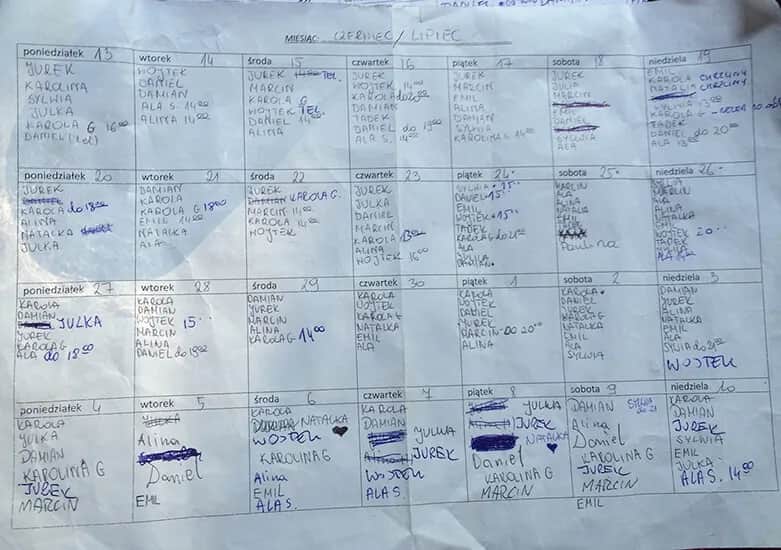 MIESIĄC: CZERWIEC / LIPIEC
poniedziałek 13
JUREK
KAROLINA
SYLWIA
JULKA
KAROLA G 16 00
DANIEL
wtorek 14
WOJTEK
DANIEL
DAMIAN
ALA S. 14 00
ALINA 14 00
środa 15
JUREK TEL.
MARCIN
KAROLA G
WOJTEK TEL.
DANIEL 14 00
ALINA
czwartek 16
JUREK
WOJTEK 14 00
KAROLA do 20 00
DAMIAN
TADEK
DANIEL do 19 00
ALA S. 14 00
piątek 17
JUREK
MARCIN
EMIL
ALINA
DAMIAN
SYLWIA
KAROLINA G 14 00
sobota 18
JUREK
JULIA
MARCIN
EMIL
DANIEL
SYLWIA
ALA
niedziela 19
EMIL
KAROLA CHRZCINY
NATALIA CHRZCINY
SYLWIA 13 00
KAROLA G
TADEK
DANIEL do 20 00
ALA 13 00
poniedziałek 20
JUREK
KAROLA do 18 00
ALINA
NATALKA
JULKA
wtorek 21
DAMIAN
KAROLA
KAROLA G 18 00
EMIL 14 00
NATALKA
ALA
środa 22
JUREK
DAMIAN KAROLA G.
MARCIN 14 00
KAROLA 14 00
WOJTEK
czwartek 23
JUREK
JULKA
DANIEL
MARCIN
KAROLA 13 00
ALINA
WOJTEK 16 00
piątek 24
SYLWIA 15
DANIEL 15
EMIL
WOJTEK 15
TADEK
KAROLA G do 21 00
ALA
JULKA
DAMIAN
sobota 25
MARCIN
ALA
ALINA
NATALIA
EMIL
Paulina
niedziela 26
MARCIN
ALA
ALINA
NATALKA
EMIL
WOJTEK 20
TADEK
SYLWIA
poniedziałek 27
KAROLA
DAMIAN
JULKA
JUREK
KAROLA G
ALA do 18 00
wtorek 28
KAROLA
DAMIAN
WOJTEK 15
MARCIN
ALINA
DANIEL do 18 00
środa 29
DAMIAN
JUREK
MARCIN
ALINA
KAROLA G 14 00
czwartek 30
KAROLA
WOJTEK
KAROLA G
NATALKA
EMIL
ALA
piątek 1
KAROLA
WOJTEK
DANIEL
JUREK
MARCIN DO 20 00
ALINA
sobota 2
KAROLA
DANIEL
JUREK
KAROLA G
NATALKA
EMIL
ALA
SYLWIA
niedziela 3
DAMIAN
JUREK
ALINA
NATALKA
EMIL
ALA
SYLWIA do 21 00
WOJTEK
poniedziałek 4
KAROLA
JULKA
DAMIAN
KAROLINA G
JUREK
MARCIN
wtorek 5
Alina
Daniel
EMIL
środa 6
KAROLA
NATALKA
WOJTEK
KAROLINA G
Alina
EMIL
ALA S.
czwartek 7
KAROLA
DAMIAN
JULKA
JUREK
WOJTEK
ALA S.
piątek 8
JULKA
JUREK
NATALKA
Daniel
KAROLINA G
MARCIN
sobota 9
DAMIAN SYLWIA do 21
Alina
Daniel
KAROLINA G
JUREK
MARCIN
EMIL
niedziela 10
KAROLA
DAMIAN
JUREK
SYLWIA
EMIL
JULKA
ALA S. 14 00